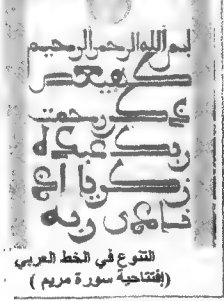 بسم الله الرحمن الرحيم
كهيعص
ذكر رحمت
ربك عبده
زكريا إذ
نادى ربه
التنوع في الخط العربي
(إفتتاحية سورة مريم )